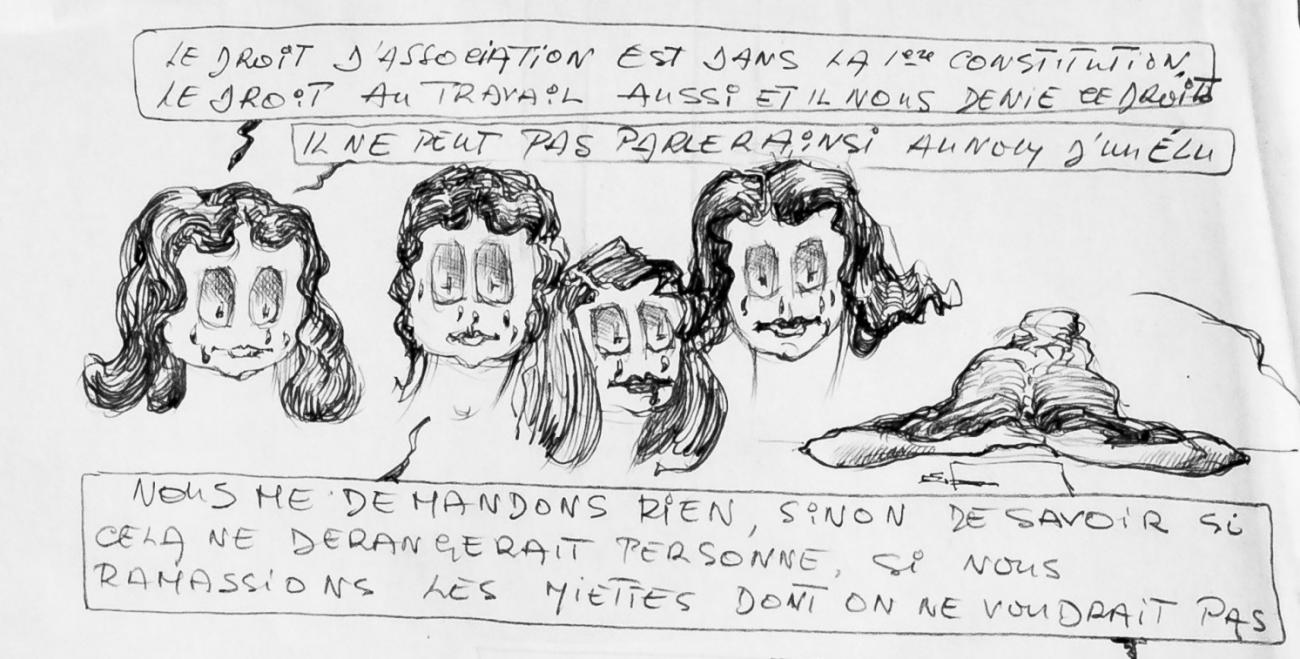 LE DROIT D'ASSOCIATION EST DANS LA 1ere CONSTITUTION,
LE DROIT AU TRAVAIL AUSSI ET IL NOUS DENIE CE DROIT
IL NE PEUT PAS PARLER AINSI AU NOM D'UN ÉLU
NOUS NE DEMANDONS RIEN, SINON DE SAVOIR SI
CELA NE DERANGERAIT PERSONNE, SI NOUS
RAMASSIONS LES MIETTES DONT ON NE VOUDRAIT PAS